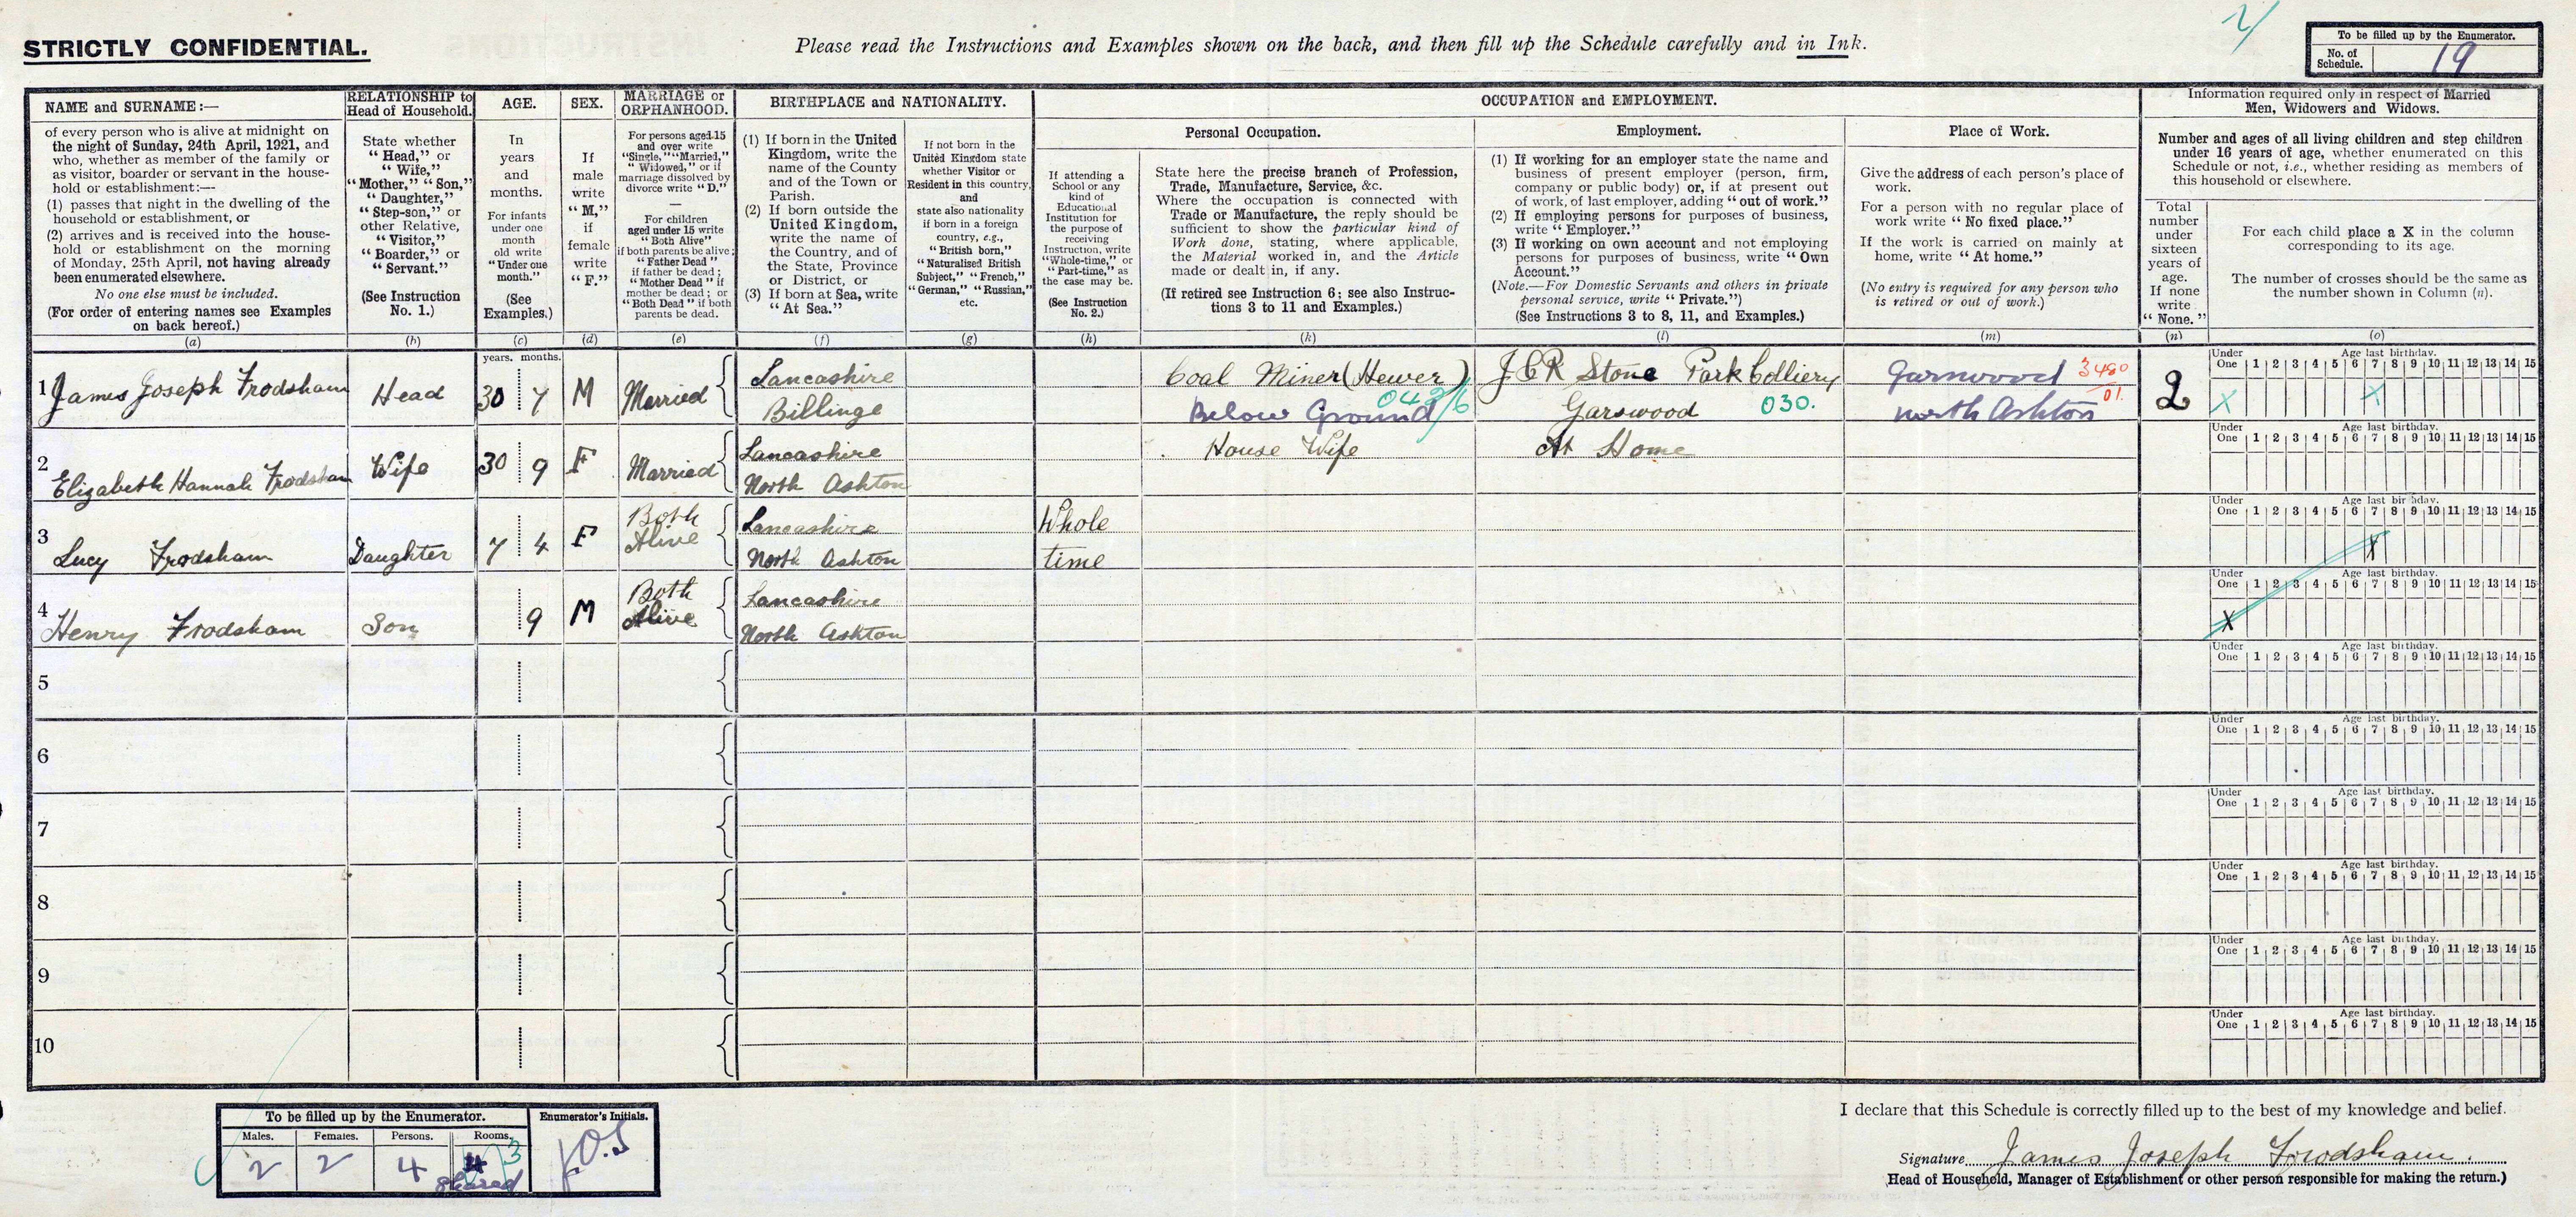 STRICTLY CONFIDENTIAL.
Please read the Instructions and Examples shown on the back, and then fill up the Schedule carefully and in Ink.
To be filled up by the Enumerator.
No. of Schedule.
19
NAME and SURNAME:—
of every person who is alive at midnight on
the night of Sunday, 24th April, 1921, and
who, whether as member of the family or
as visitor, boarder or servant in the house-
hold or establishment:—
(1) passes that night in the dwelling of the
household or establishment, or
(2) arrives and is received into the house-
hold or establishment on the morning
of Monday, 25th April, not having already
been enumerated elsewhere.
No one else must be included.
(For order of entering names see Examples
on back hereof.)
(a)
RELATIONSHIP to
Head of Household.
State whether
"Head," or
"Wife,"
"Mother," "Son,"
"Daughter,"
"Step-son," or
other Relative,
"Visitor,"
"Boarder," or
"Servant."
(See Instruction
No. 1.)
(b)
AGE.
In
years
and
months.
For infants
under one
month
old write
"Under one
month."
(See
Examples.)
(c)
SEX.
If
male
write
"M,"
if
female
write
"F."
(d)
MARRIAGE or
ORPHANHOOD.
For persons aged 15
and over write
"Single," "Married,"
"Widowed," or if
marriage dissolved by
divorce write "D."
—
For children
aged under 15 write
"Both Alive"
if both parents be alive;
"Father Dead"
if father be dead;
"Mother Dead" if
mother be dead; or
"Both Dead" if both
parents be dead.
(e)
BIRTHPLACE and NATIONALITY.
(1) If born in the United
Kingdom, write the
name of the County
and of the Town or
Parish.
(2) If born outside the
United Kingdom,
write the name of
the Country, and of
the State, Province
or District, or
(3) If born at Sea, write
"At Sea."
(f)
If not born in the
United Kingdom state
whether Visitor or
Resident in this country,
and
state also nationality
if born in a foreign
country, e.g.,
"British born,"
"Naturalised British
Subject," "French,"
"German," "Russian,"
etc.
(g)
OCCUPATION and EMPLOYMENT.
If attending a
School or any
kind of
Educational
Institution for
the purpose of
receiving
Instruction, write
"Whole-time," or
"Part-time," as
the case may be.
(See Instruction
No. 2.)
(h)
Personal Occupation.
State here the precise branch of Profession,
Trade, Manufacture, Service, &c.
Where the occupation is connected with
Trade or Manufacture, the reply should be
sufficient to show the particular kind of
Work done, stating, where applicable,
the Material worked in, and the Article
made or dealt in, if any.
(If retired see Instruction 6; see also Instruc-
tions 3 to 11 and Examples.)
(k)
Employment.
(1) If working for an employer state the name and
business of present employer (person, firm,
company or public body) or, if at present out
of work, of last employer, adding "out of work."
(2) If employing persons for purposes of business,
write "Employer."
(3) If working on own account and not employing
persons for purposes of business, write "Own
Account."
(Note.—For Domestic Servants and others in private
personal service, write "Private.")
(See Instructions 3 to 8, 11, and Examples.)
(l)
Place of Work.
Give the address of each person's place of
work.
For a person with no regular place of
work write "No fixed place."
If the work is carried on mainly at
home, write "At home."
(No entry is required for any person who
is retired or out of work.)
(m)
Information required only in respect of Married
Men, Widowers and Widows.
Number and ages of all living children and step children
under 16 years of age, whether enumerated on this
Schedule or not, i.e., whether residing as members of
this household or elsewhere.
Total
number
under
sixteen
years of
age.
If none
write
"None."
(n)
For each child place a X in the column
corresponding to its age.
The number of crosses should be the same as
the number shown in Column (n).
(o)
years. months.
Under One Age last birthday. 1 2 3 4 5 6 7 8 9 10 11 12 13 14 15
1 James Joseph Frodsham Head 30 7 M Married Lancashire Billinge
Coal Miner (Hewer) Below Ground
J & R Stone Park Colliery Garswood 030.
Garswood North Ashton 3480 01. 2 X X
Under One Age last birthday. 1 2 3 4 5 6 7 8 9 10 11 12 13 14 15
2 Elizabeth Hannah Frodsham Wife 30 9 F Married Lancashire North Ashton House Wife At Home
Under One Age last birthday. 1 2 3 4 5 6 7 8 9 10 11 12 13 14 15
3 Lucy Frodsham Daughter 7 4 F Both Alive Lancashire North Ashton Whole time X
Under One Age last birthday. 1 2 3 4 5 6 7 8 9 10 11 12 13 14 15
4 Henry Frodsham Son 9 M Both Alive Lancashire North Ashton X
5 Under One Age last birthday. 1 2 3 4 5 6 7 8 9 10 11 12 13 14 15
6 Under One Age last birthday. 1 2 3 4 5 6 7 8 9 10 11 12 13 14 15
7 Under One Age last birthday. 1 2 3 4 5 6 7 8 9 10 11 12 13 14 15
8 Under One Age last birthday. 1 2 3 4 5 6 7 8 9 10 11 12 13 14 15
9 Under One Age last birthday. 1 2 3 4 5 6 7 8 9 10 11 12 13 14 15
10 Under One Age last birthday. 1 2 3 4 5 6 7 8 9 10 11 12 13 14 15
To be filled up by the Enumerator.
Enumerator's Initials.
Males. Females. Persons. Rooms.
2 2 4 3
shared
I declare that this Schedule is correctly filled up to the best of my knowledge and belief.
Signature James Joseph Frodsham.
Head of Household, Manager of Establishment or other person responsible for making the return.)